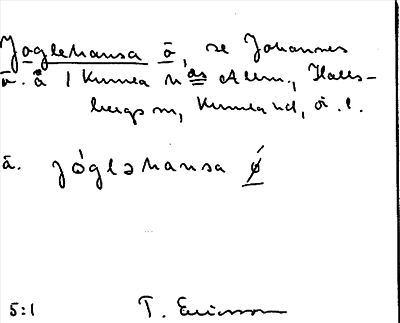 Joglehansa ö, se Johannes
ö. å 1 Kumla n as Alm., Halls-
bergs sn, Kumla hd, Ö.l.
a. jógləhansa ǿ
5:1 T. Ericsson